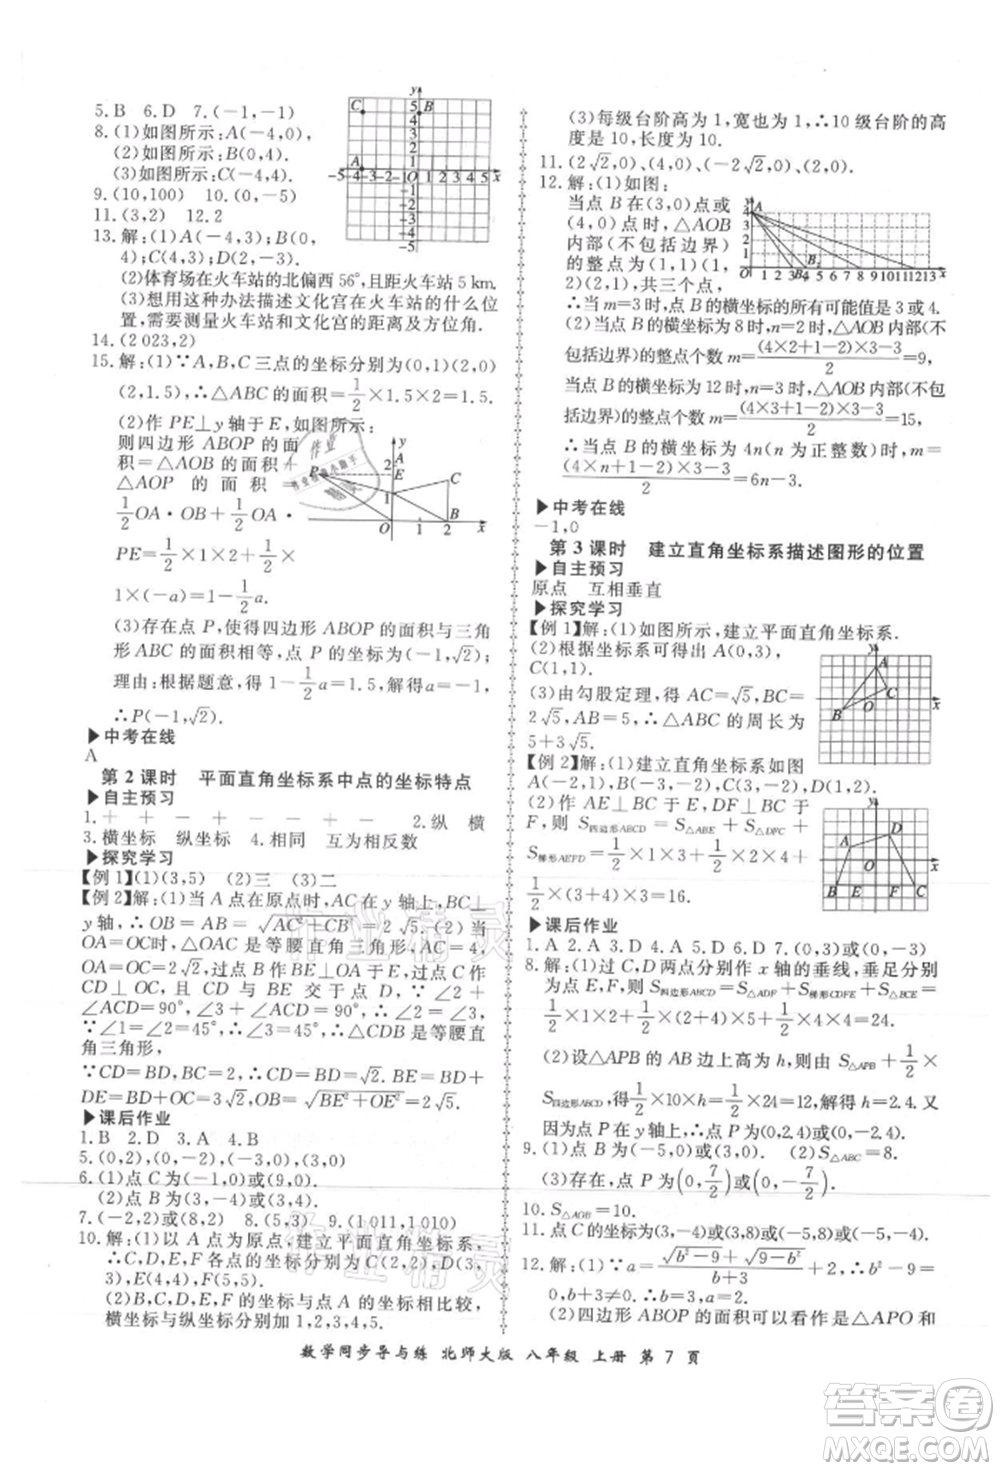 5. B 6. D 7. (-1,-1)
8. (1)如图所示:A(-4,0),
(2)如图所示:B(0,4).
(3)如图所示:C(-4,4).
9. (10,100) 10. (0,-5)
11. (3,2) 12. 2
13. 解:(1)A(-4,3);B(0,
4);C(4,3);D(2,-1).
(2)体育场在火车站的北偏西56°,且距火车站5 km.
(3)想用这种办法描述文化宫在火车站的什么位
置,需要测量火车站和文化宫的距离及方位角.
14. (2 023,2)
15. 解:(1)∵A,B,C三点的坐标分别为(0,1)(2,0)
(2,1.5),∴△ABC的面积=1/2×1.5×2=1.5.
(2)作PE⊥y轴于E,如图所示:
则四边形ABOP的面
积=△AOB的面积+
△AOP的面积=
1/2OA·OB+1/2OA·
PE=1/2×1×2+1/2×
1×(-a)=1-1/2a.
(3)存在点P,使得四边形ABOP的面积与三角
形ABC的面积相等,点P的坐标为(-1,√2).
理由:根据题意,得1-1/2a=1.5,解得a=-1,
∴P(-1,√2).
▶中考在线
A
第2课时 平面直角坐标系中点的坐标特点
▶自主预习
1. + + - + - - + - 2. 纵 横
3. 横坐标 纵坐标 4. 相同 互为相反数
▶探究学习
【例1】(1)(3,5) (2)三 (3)二
【例2】解:(1)当A点在原点时,AC在y
轴,∴OB=AB=√(AC²+CB²)=2√5.(2)当
OA=OC时,△OAC是等腰直角三角形,AC=4,
∴∠1=∠2=45°,过点B作BE⊥OA于E,过点C作
CD⊥OC,BE与CD交于点D,∵∠2+
∠ACD=90°,∠3+∠ACD=90°,∴∠2=∠3.
∵∠1=∠2=45°,∴∠3=45°,∴△CDB是等腰直
角三角形,
∵CD=BD,BC=2,∴CD=BD=√2.∵BE=BD+
DE=BD+OC=3√2,∴OB=√(BE²+OE²)=2√5.
▶课后作业
1. B 2. D 3. A 4. B
5. (0,2),(-2,0),(0,-2)
6. (1)点C为(-1,0)或(9,0)
(2)点C为(0,-3)或(0,3)
7. (-2,2)或(8,2) 8. (5,3) 9. (1 011,1 010)
10. 解:(1)以A点为原点,建立平面直角坐标系,
∴C,D,E,F各点的坐标分别为C(2,1),D(3,
3),E(4,4),F(5,5).
(2)B,C,D,E,F的坐标与点A的坐标相比较,
横坐标与纵坐标分别加1,2,3,4,5.
(3)每级台阶高为1,宽也为1,∴10级台阶的高
度是10,长度为10.
11. (2√2,0),(4,0),(-2√2,0),(2,0).
12. 解:(1)如图:
当点B为(3,0)点或
(4,0)点时,△AOB
内部(不包括边界)
的整点为(1,1),(1,
2),(2,1),共三个点,
∴当m=3时,点B的横坐标的所有可能值是3或4.
(2)当点B的横坐标为8时,n=2时,△AOB内部(不
包括边界)的整点个数m=((4×2+1-2)×3-3)/2=9,
当点B的横坐标为12时,n=3时,△AOB内部(不
包括边界)的整点个数m=((4×3+1-2)×3-3)/2=15,
∴当点B的横坐标为4n(n为正整数)时,m=
((4×n+1-2)×3-3)/2=6n-3.
▶中考在线
-1,0
第3课时 建立直角坐标系描述图形的位置
▶自主预习
原点 互相垂直
▶探究学习
【例1】解:(1)如图所示,建立平面直角坐标系.
(2)根据坐标系可得出A(0,3),
C(1,1).
(3)由勾股定理,得AC=√5,BC=
2√5,AB=5,∴△ABC的周长为
5+3√5.
【例2】解:(1)建立坐标系如图
A(-2,1),B(-3,-2),C(3,-2),D(1,2)
(2)作AE⊥BC于E,DF⊥BC于
F,则S四边形ABCD=S△ABE+S△DFC+
S梯形AEFD=1/2×1×3+1/2×2×4
+1/2×(3+4)×3=16.
▶课后作业
1. A 2. A 3. A 4. A 5. D 6. D 7. (0,3)或(0,-3)
8. 解:(1)过C,D两点分别作x轴的垂线,垂足分别
为点E,F,则S四边形ABCD=S△ADF+S梯形CDFE+S△BCE=
1/2×1×2+1/2×(2+4)×5+1/2×4×4=24.
(2)设△APB的AB边上高为h,则由S△APB=1/2×
S四边形ABCD,得1/2×10×h=1/2×24,解得h=2.4,又
因为点P在y轴上,∴点P为(0,2.4)或(0,-2.4).
9. (1)点A(-4,0),B(0,3)或(0,-3) (2)S△ABC=8.
(3)存在,点P为(0,7/2)或(0,-7/2).
10. S△AOB=10.
11. 点C的坐标为(3,-4)或(3,8)或(-5,-4)或(-5,8)
12. 解:(1)∵a=(√(b²-9)+√(9-b²))/(b+3),∴b²-9=
0,b+3≠0.∴b=3,a=0.
(2)四边形ABOP的面积可以看作是△APO和
数学同步导与练 北师大版 八年级 上册 第7页
作业精灵
作业精灵
答案圈
MXQE.COM